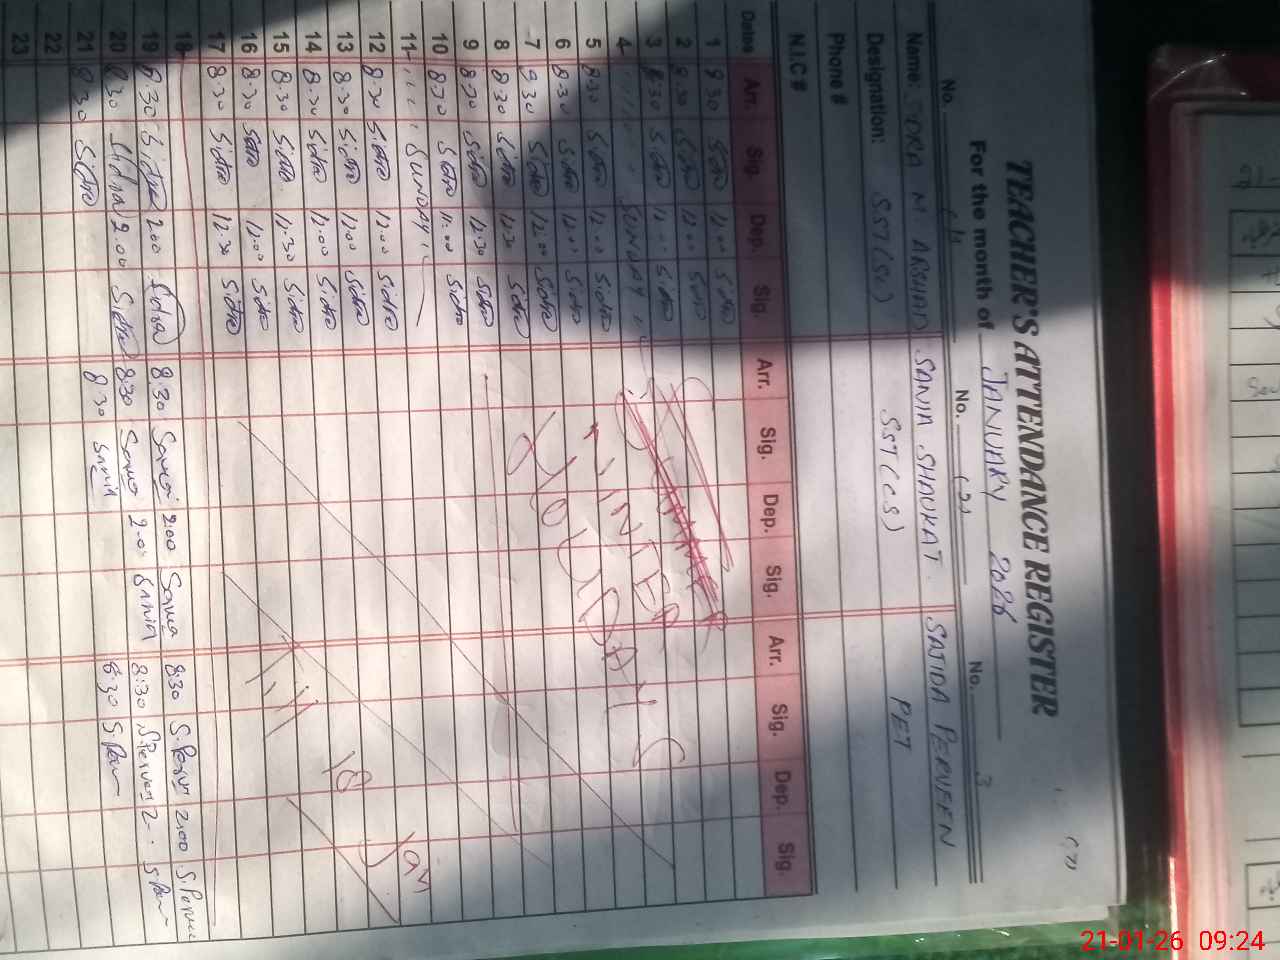 (7)
TEACHER'S ATTENDANCE REGISTER
For the month of JANUARY 2026
No. No. No. 3
Name: SIDRA M ARSHAD SANIA SHAUKAT. SAJIDA PERVEEN
Designation: SST(Sc) SST(CS) PET
Phone #
N.I.C #
Dates Arr. Sig. Dep. Sig. Arr. Sig. Dep. Sig. Arr. Sig. Dep. Sig.
1 8.30 Sidra 12.00 Sidra
2 8.30 Sidra 12.00 Sidra
3 8.30 Sidra 12.00 Sidra
4 SUNDAY
5 8.30 Sidra 12.00 Sidra
6 8.30 Sidra 12.00 Sidra
7 8.30 Sidra 12.00 Sidra
8 8.30 Sidra 12.30 Sidra
9 8.30 Sidra 12.30 Sidra
10 8.30 Sidra 11.00 Sidra
11 SUNDAY
12 8.30 Sidra 12.00 Sidra
13 8.30 Sidra 12.00 Sidra
14 8.30 Sidra 12.00 Sidra
15 8.30 Sidra 12.30 Sidra
16 8.30 Sidra 12.00 Sidra
17 8.30 Sidra 12.30 Sidra
WINTER
HOLIDAYS
18 Jan
18
19 8.30 Sidra 2.00 Sidra 8.30 Sania 2.00 Sania 8.30 S.Perveen 2.00 S.Perveen
20 8.30 Sidra 2.00 Sidra 8.30 Sania 2.00 SANIA 8:30 S.Perveen 2
21 8.30 Sidra 8.30 SANIA 8.30
22
23
21-01-26 09:24